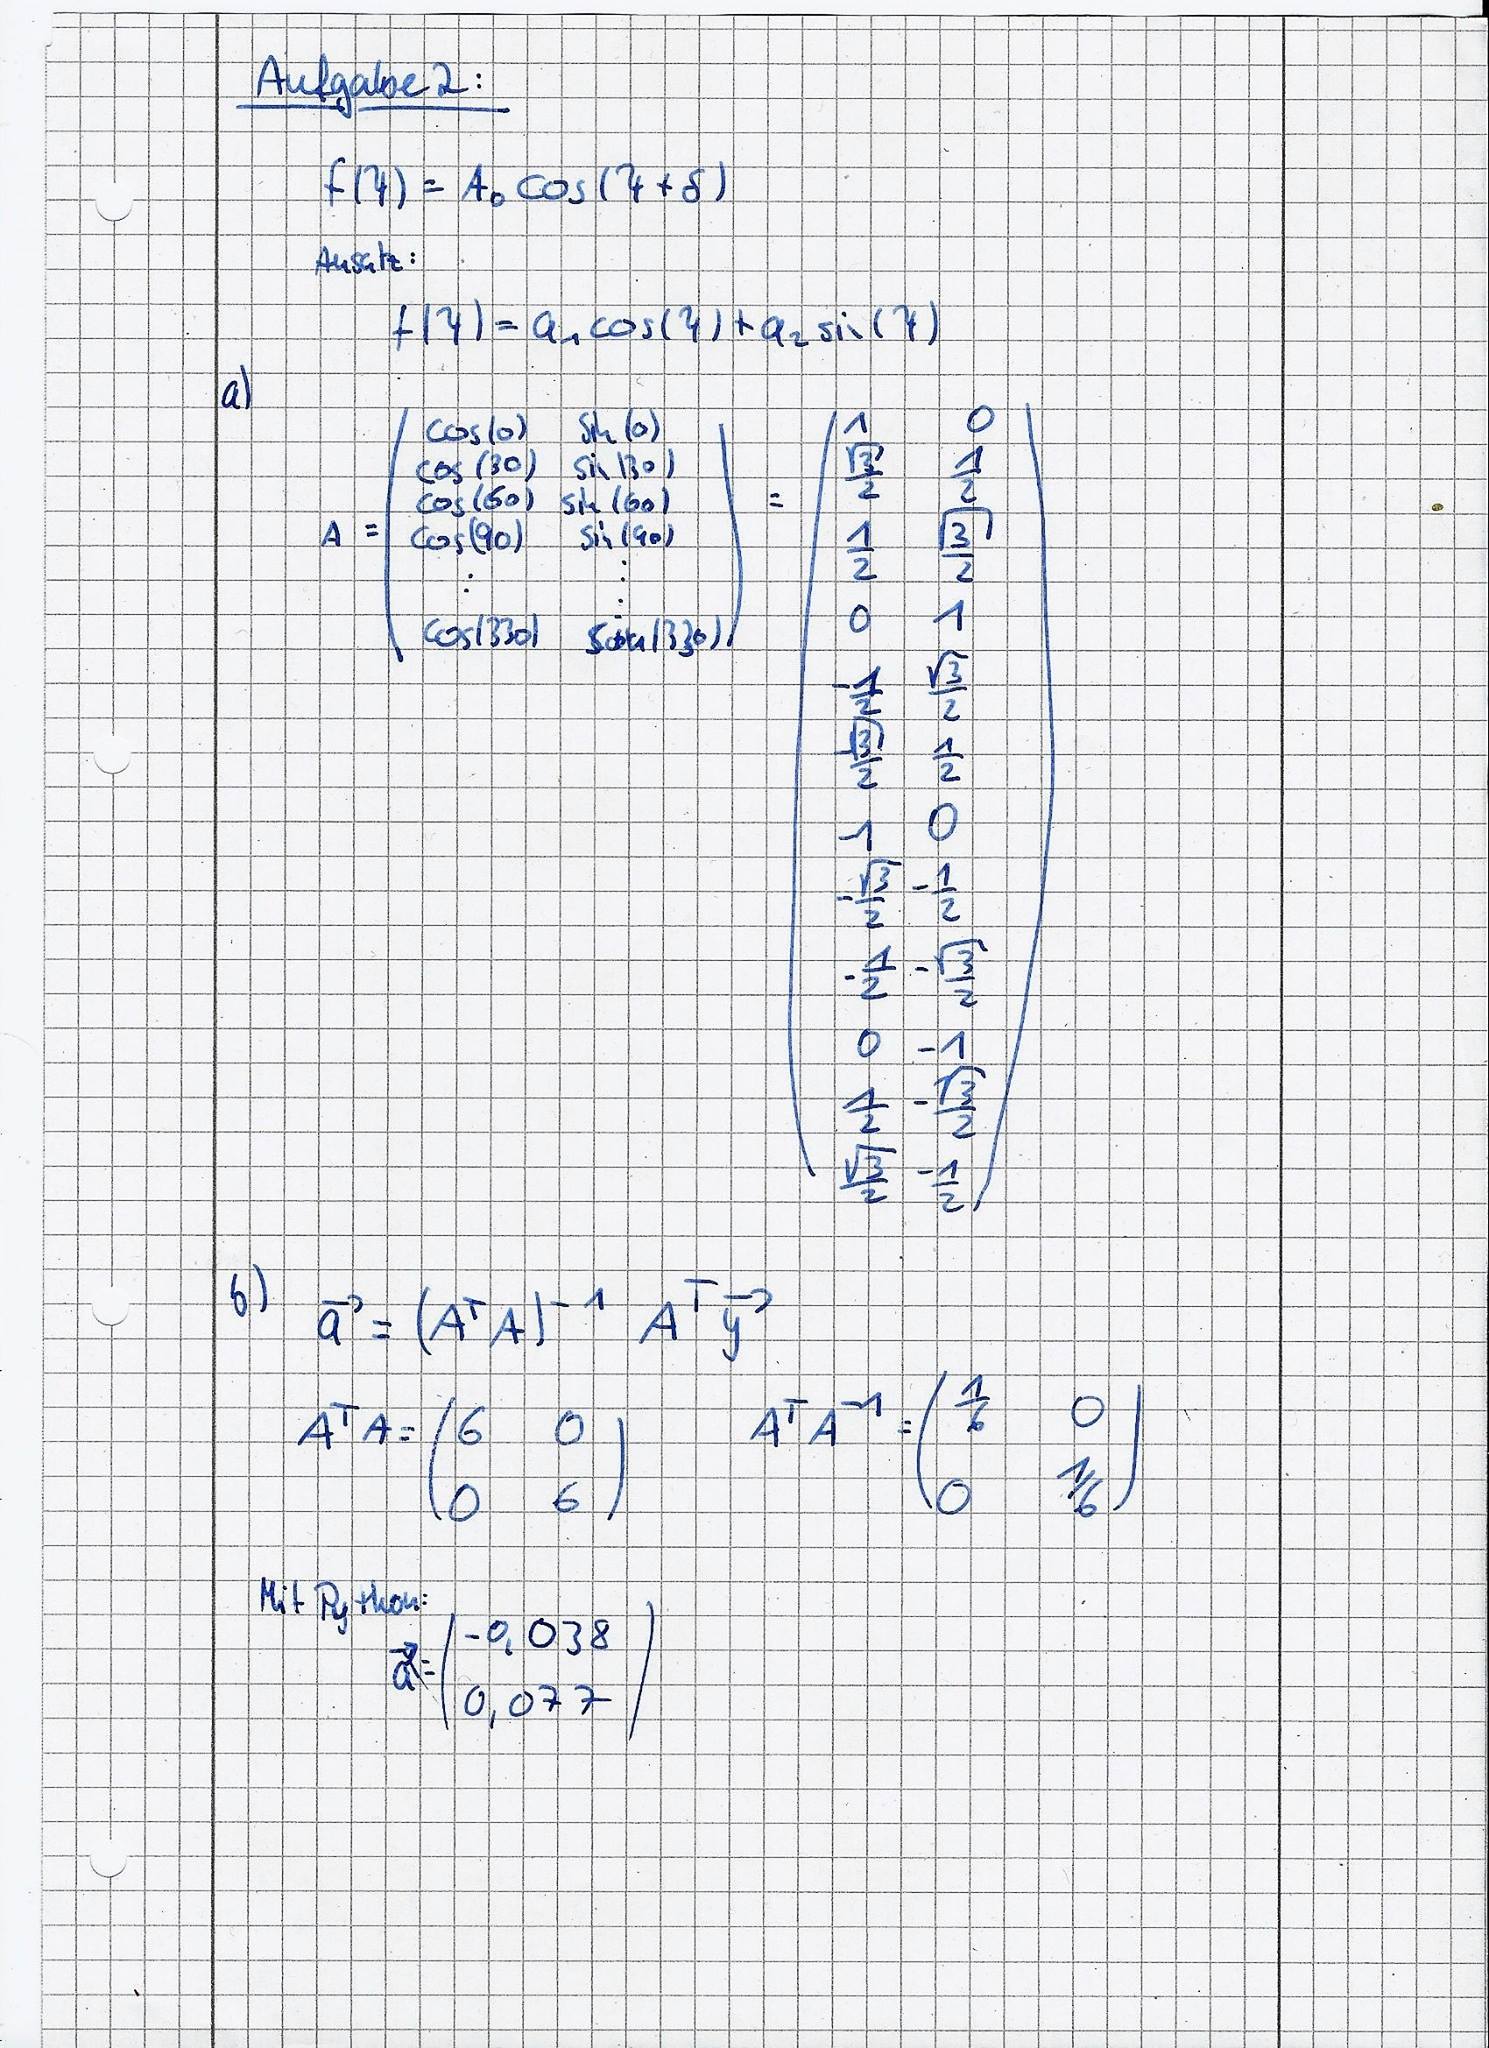 Aufgabe 2:
f(ψ) = A₀ cos(ψ + δ)
Ansatz:
f(ψ) = a₁ cos(ψ) + a₂ sin(ψ)
a)
cos(0) sin(0)
cos(30) sin(30)
cos(60) sin(60)
A = cos(90) sin(90)
⋮ ⋮
cos(330) sin(330)
=
1 0
√3/2 1/2
1/2 √3/2
0 1
-1/2 √3/2
-√3/2 1/2
-1 0
-√3/2 -1/2
-1/2 -√3/2
0 -1
1/2 -√3/2
√3/2 -1/2
b) a⃗ = (AᵀA)⁻¹ Aᵀy⃗
AᵀA = (6 0
0 6)
AᵀA⁻¹ = (1/6 0
0 1/6)
Mit Python:
a⃗ = (-0,038
0,077)